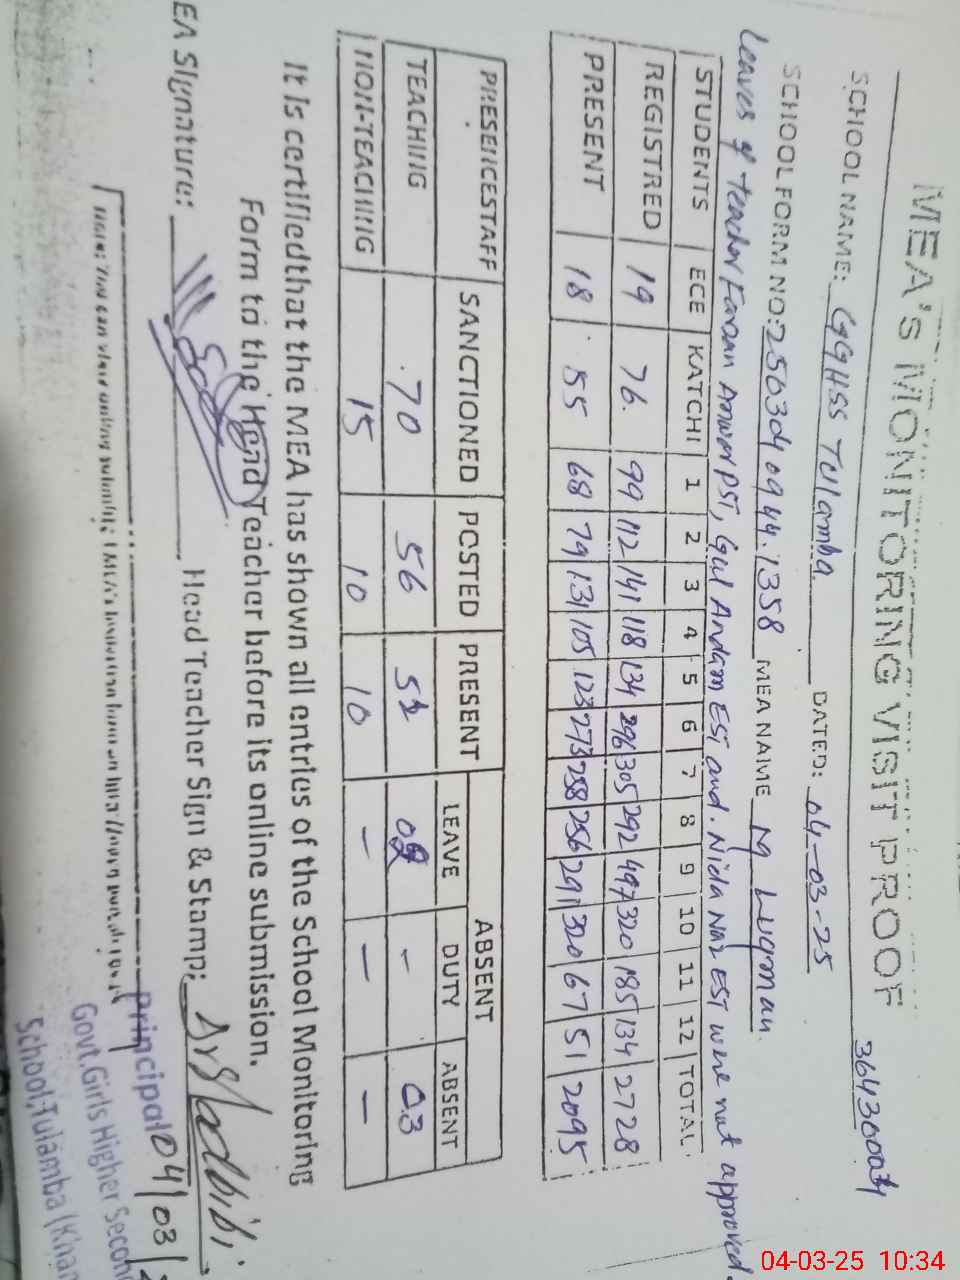 MEA's MONITORING VISIT PROOF
SCHOOL NAME: GGHSS Tulamba DATED: 04-03-25
SCHOOL FORM NO: MEA NAME M Luqman
Leaves of teacher Anwar PST, Gul Andam EST and Nida Naz EST were not approved.
STUDENTS ECE KATCHI 1 2 3 4 5 6 7 8 9 10 11 12 TOTAL
REGISTRED 19 76 99 112 141 118 134 296 305 292 497 320 185 134 2728
PRESENT 18 55 68 79 131 105 123 273 258 256 291 320 67 51 2095
PRESENCESTAFF SANCTIONED POSTED PRESENT ABSENT
LEAVE DUTY ABSENT
TEACHING 70 56 - 03
NON-TEACHING 15 10 10 - - -
It is certifiedthat the MEA has shown all entries of the School Monitoring
Form to the Head Teacher before its online submission.
EA Signature: Head Teacher Sign & Stamp:
04/03/
Principal
Govt.Girls Higher Secon
School,Tulamba (Khan
04-03-25 10:34